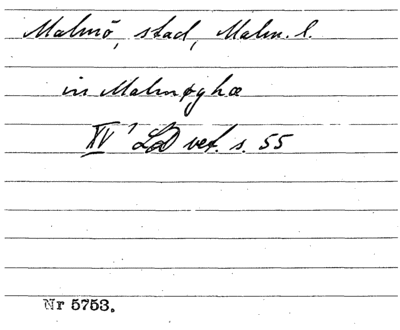 Malmö, stad, Malm. l.
in Malmøghæ
XV¹ LD vet. s. 55
Nr 5753.